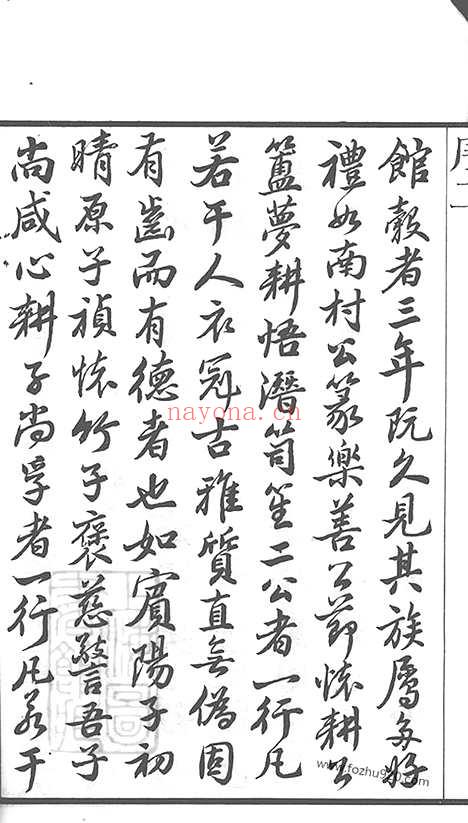 序二
館穀者三年阮久見其族屬多好
禮如南村公篆樂善公節懷耕公
簠夢耕悟潛筍笙二公者一行凡
若干人衣冠古雅質直無偽固
有齒而有德者也如賓陽子初
晴原子禎懷竹子褒慈警吾子
尚咸心耕子尚孚者一行凡若干
nayona.cn
www.fozhu920.com